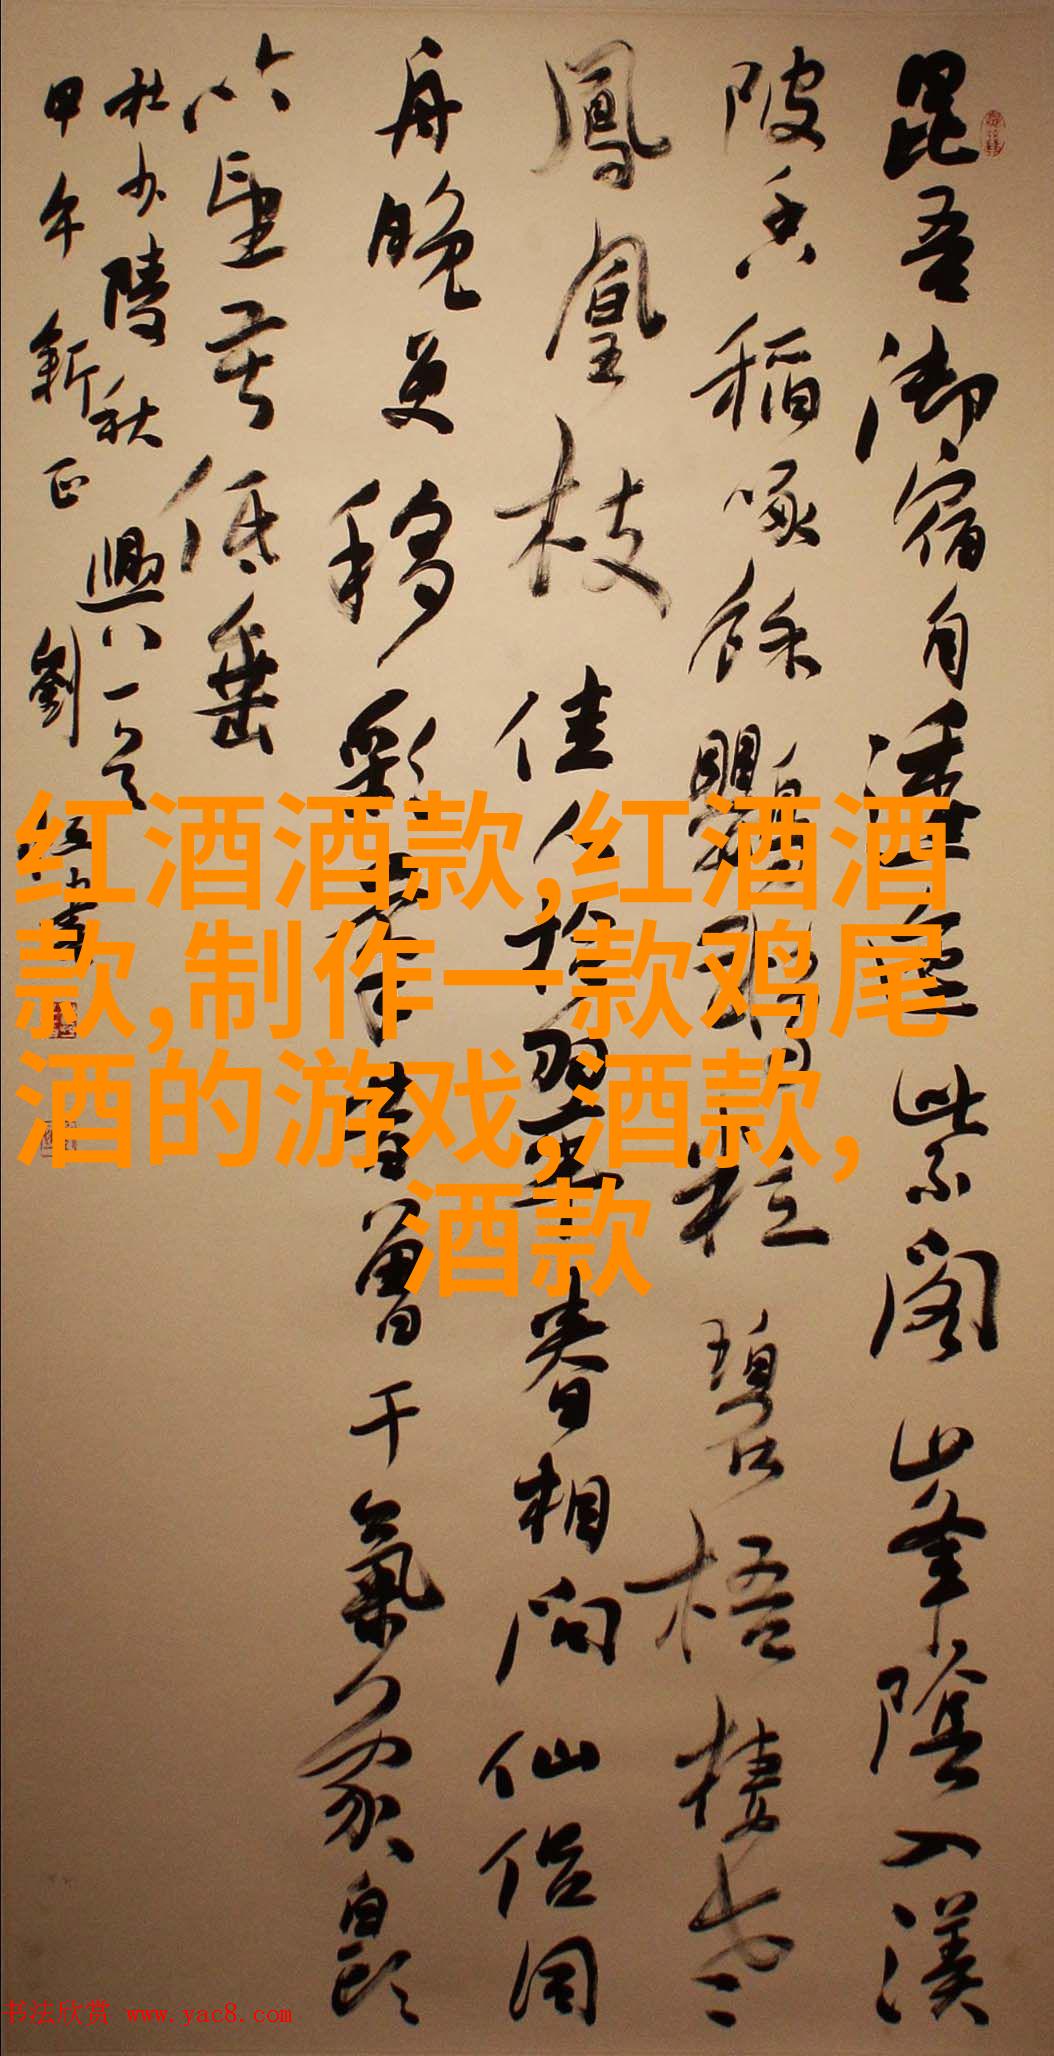 昆吾御宿自逶迤紫閣峯陰入渼
陂香稻啄餘鸚鵡粒碧梧棲老
鳳凰枝佳人拾翠春相問仙侶同
舟晚更移彩筆昔曾干氣象白頭
吟望苦低垂
杜少陵秋興八一首
甲午新正劉
红酒酒款,红酒酒
款,制作一款鸡尾
酒的游戏,酒款,
酒款
书法欣赏 www.yac8.com